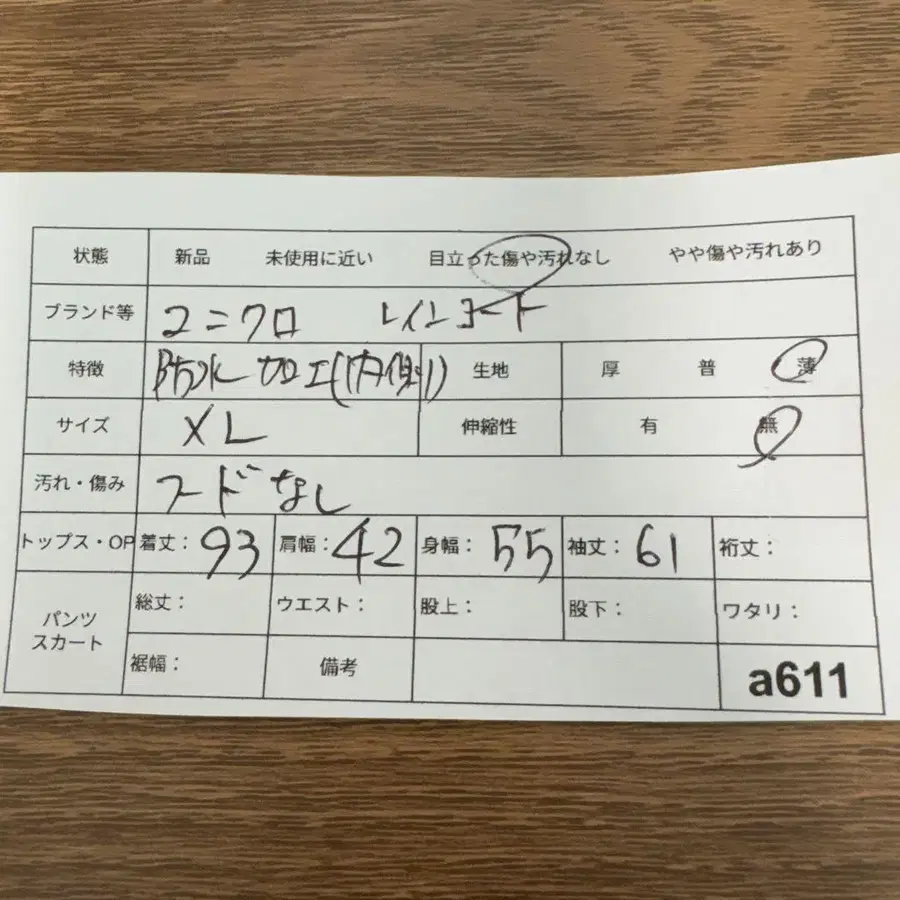 状態 新品 未使用に近い 目立った傷や汚れなし やや傷や汚れあり
ブランド等 ユニクロ レインコート
特徴 防水加工(内側) 生地 厚 普 薄
サイズ XL 伸縮性 有 無
汚れ・傷み フードなし
トップス・OP 着丈: 93 肩幅: 42 身幅: 55 袖丈: 61 裄丈:
パンツ スカート 総丈: ウエスト: 股上: 股下: ワタリ:
裾幅: 備考 a611